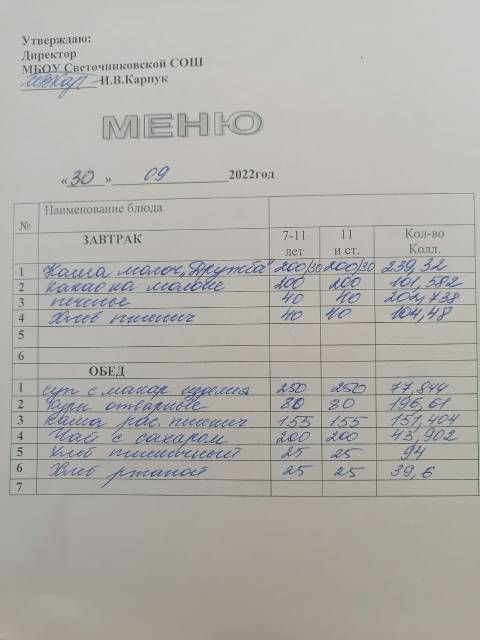 Утверждаю:
Директор
МБОУ Светочниковской СОШ
И.В.Карпук
МЕНЮ
«30» 09 2022год
№ Наименование блюда
ЗАВТРАК 7-11 лет 11 и ст. Кол-во Колл.
1 Каша молоч „Дружба" 200/30 200/30 239,32
2 какао на молоке 200 200 101,582
3 печенье 40 40 202,738
4 Хлеб пшенич 40 40 104,48
5
6
ОБЕД
1 суп с макар. изделия 250 250 77,844
2 Куры отварные 80 80 196,61
3 каша рас. пшенич 155 155 151,404
4 Чай с сахаром 200 200 43,902
5 Хлеб пшеничный 25 25 94
6 Хлеб ржаной 25 25 39,6
7